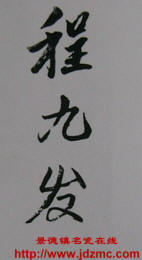 程九发
景德镇名瓷在线
http://www.jdzmc.com